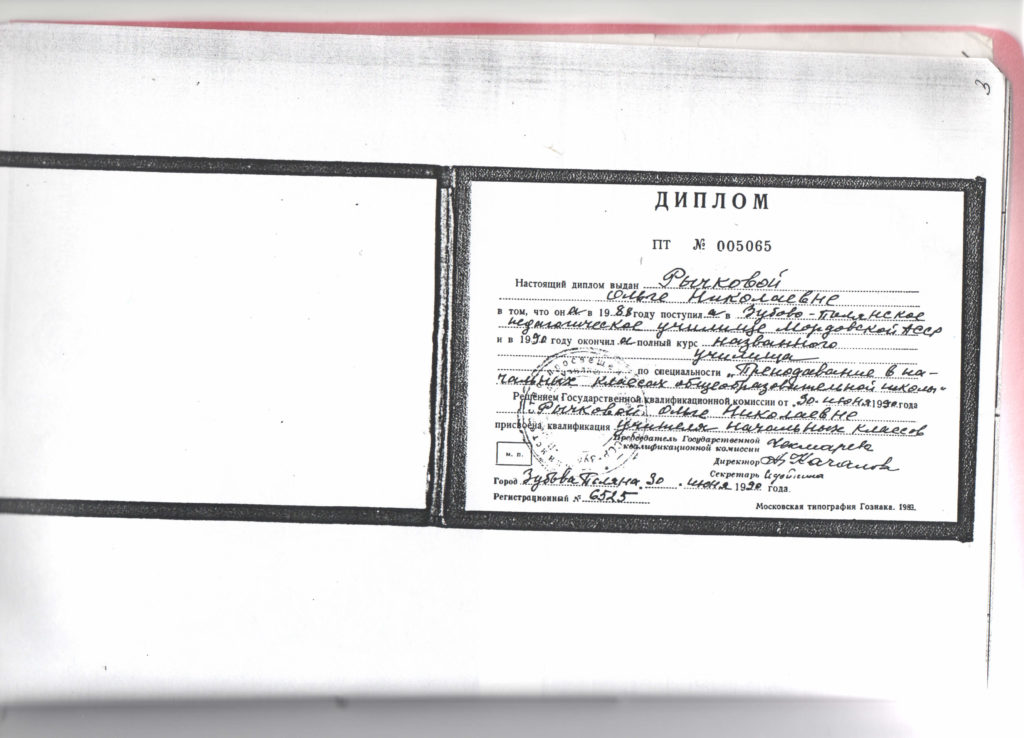 3
ДИПЛОМ
ПТ № 005065
Настоящий диплом выдан Рычковой
Ольге Николаевне
в том, что она в 1988 году поступила в Зубово-Полянское
педагогическое училище Мордовской АССР
и в 1990 году окончила полный курс названного
училища
по специальности „Преподавание в на-
чальных классах общеобразовательной школы"
Решением Государственной квалификационной комиссии от 30 июня 1990 года
Рычковой Ольге Николаевне
присвоена квалификация учителя начальных классов
Председатель Государственной
квалификационной комиссии
м. п.
Директор
Секретарь
Город Зубова Поляна 30 июня 1990 года.
Регистрационный № 6525
Московская типография Гознака. 1983.